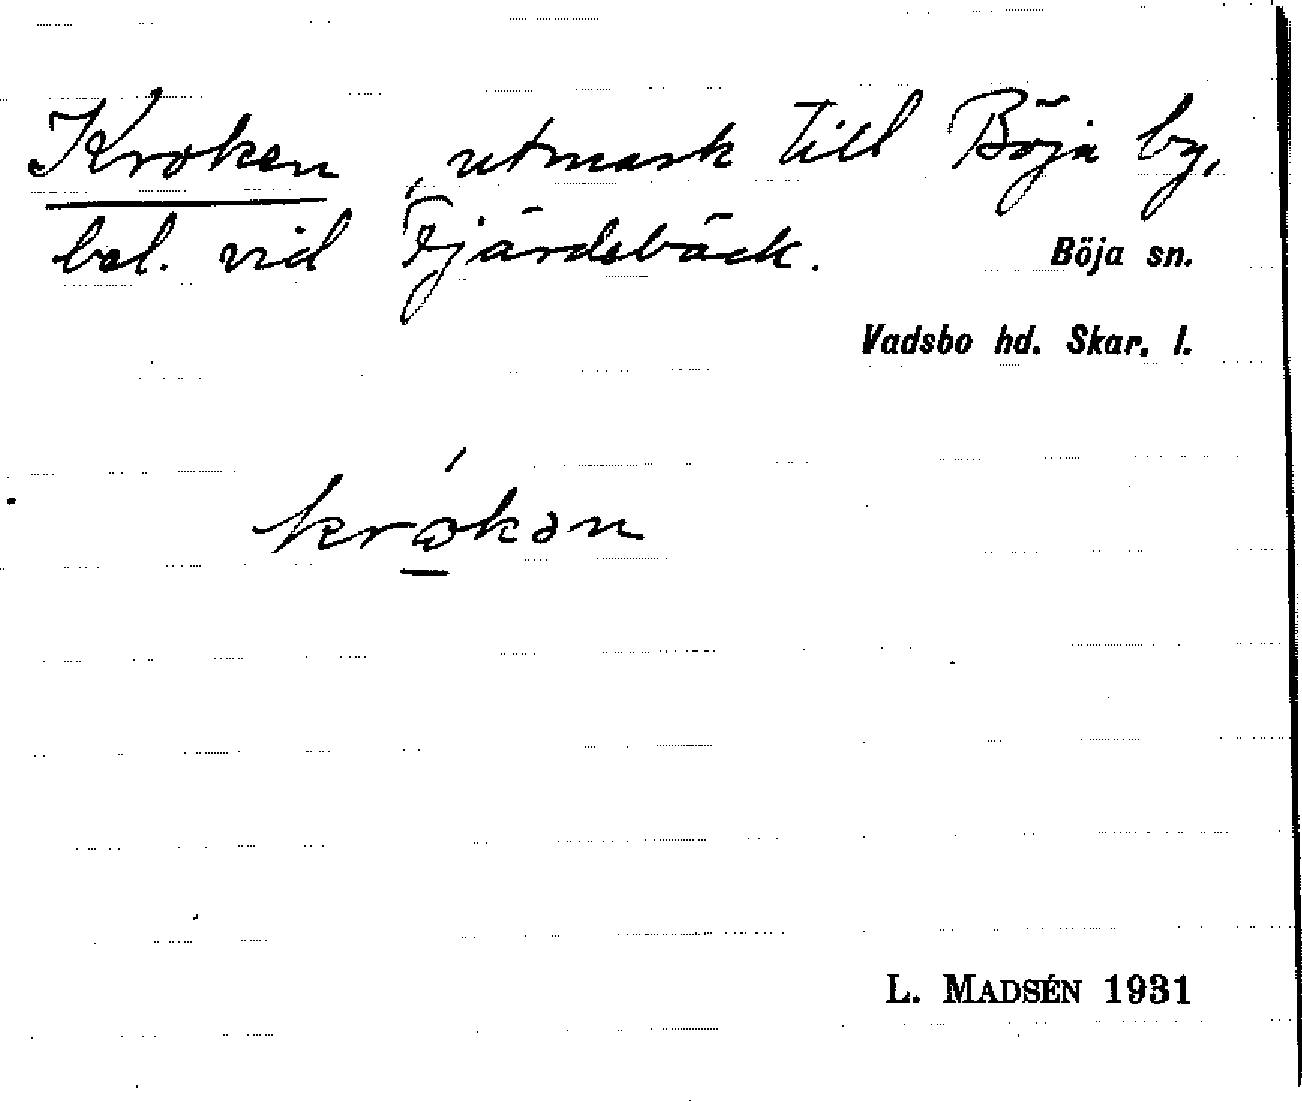 Kroken, utmark till Böja by,
bel. vid Fjärdebäck.
Böja sn.
Vadsbo hd. Skar. l.
krokən
L. MADSÉN 1931